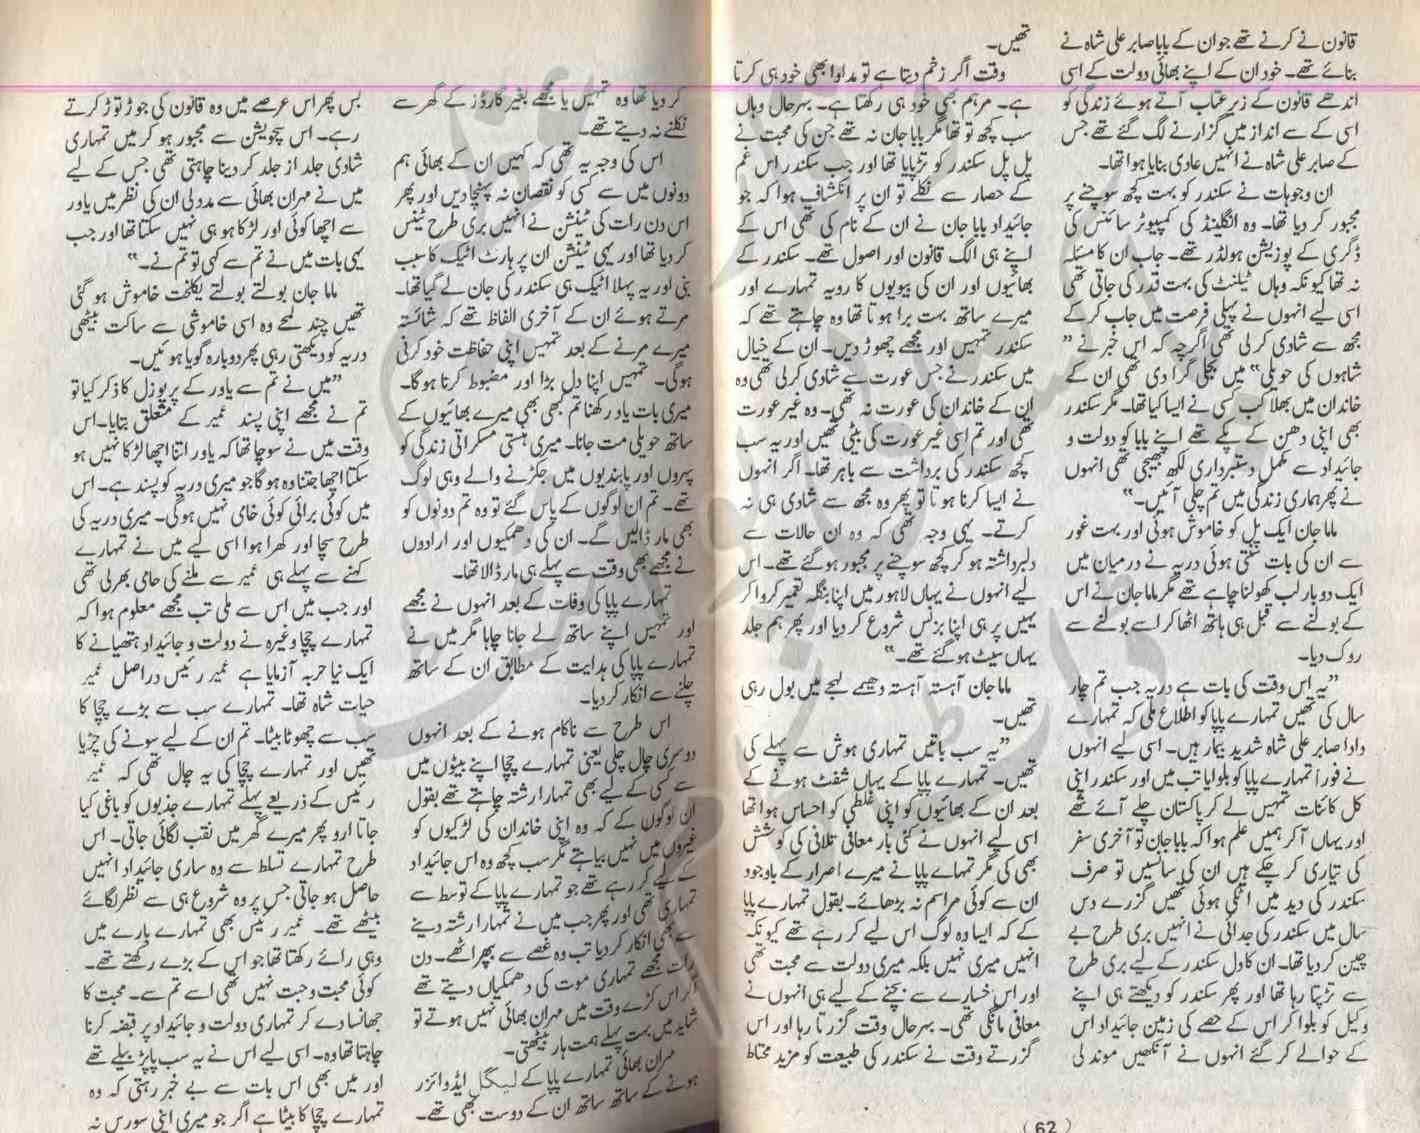 قانون نے کرنے تھے جو ان کے بابا صابر علی شاہ نے
بنائے تھے۔ خود ان کے اپنے بھائی دولت کے اسی
اندھے قانون کے زیر عتاب آتے ہوئے زندگی کو
اسی کے سے انداز میں گزارنے لگ گئے تھے جس
کے صابر علی شاہ نے انہیں عادی بنایا ہوا تھا۔
ان وجوہات نے سکندر کو بہت کچھ سوچنے پر
مجبور کر دیا تھا۔ وہ انگلینڈ کی کمپیوٹر سائنس کی
ڈگری کے پوزیشن ہولڈر تھے۔ جاب ان کا مسئلہ
نہ تھا کیونکہ وہاں ٹیلنٹ کی بہت قدر کی جاتی تھی
اسی لیے انہوں نے پہلی فرصت میں جاب کر کے
مجھ سے شادی کر لی تھی اگرچہ کہ اس خبر نے ”
شاہوں کی حویلی“ میں بجلی گرا دی تھی ان کے
خاندان میں بھلا کب کسی نے ایسا کیا تھا۔ مگر سکندر
بھی اپنی دھن کے پکے تھے اپنے بابا کو دولت و
جائیداد سے مکمل دستبرداری لکھ بھیجی تھی انہوں
نے پھر ہماری زندگی میں تم چلی آئیں۔“
ماما جان ایک پل کو خاموش ہوئی اور بہت غور
سے ان کی بات سنتی ہوئی دریہ نے درمیان میں
ایک دو بار لب کھولنا چاہے تھے مگر ماما جان نے اس
کے بولنے سے قبل ہی ہاتھ اٹھا کر اسے بولنے سے
روک دیا۔
”یہ اس وقت کی بات ہے دریہ جب تم چار
سال کی تھیں تمہارے پاپا کو اطلاع ملی کہ تمہارے
دادا صابر علی شاہ شدید بیمار ہیں۔ اسی لیے انہوں
نے فورا تمہارے پاپا کو بلوایا تب میں اور سکندر اپنی
کل کائنات تمہیں لے کر پاکستان چلے آئے تھے
اور یہاں آ کر ہمیں علم ہوا کہ بابا جان تو آخری سفر
کی تیاری کر چکے ہیں ان کی سانسیں تو صرف
سکندر کی دید میں اٹکی ہوئی تھیں گزرے دس
سال میں سکندر کی جدائی نے انہیں بری طرح بے
چین کر دیا تھا۔ ان کا دل سکندر کے لیے بری طرح
سے تڑپتا رہا تھا اور پھر سکندر کو دیکھتے ہی اپنے
وکیل کو بلوا کر اس کے حصے کی زمین جائیداد اس
کے حوالے کر گئے انہوں نے آنکھیں موند لی
تھیں۔
وقت اگر زخم دیتا ہے تو مداوا بھی خود ہی کرتا
ہے۔ مرہم بھی خود ہی رکھتا ہے۔ بہرحال وہاں
سب کچھ تو تھا مگر بابا جان نہ تھے جن کی محبت نے
پل پل سکندر کو تڑپایا تھا اور جب سکندر اس غم
کے حصار سے نکلے تو ان پر انکشاف ہوا کہ جو
جائیداد بابا جان نے ان کے نام کی تھی اس کے
اپنے ہی الگ قانون اور اصول تھے۔ سکندر کے
بھائیوں اور ان کی بیویوں کا رویہ تمہارے اور
میرے ساتھ بہت برا ہوتا تھا وہ چاہتے تھے کہ
سکندر تمہیں اور مجھے چھوڑ دیں۔ ان کے خیال
میں سکندر نے جس عورت سے شادی کر لی تھی وہ
ان کے خاندان کی عورت نہ تھی۔ وہ غیر عورت
تھی اور تم اسی غیر عورت کی بیٹی تھیں اور یہ سب
کچھ سکندر کی برداشت سے باہر تھا۔ اگر انہوں
نے ایسا کرنا ہوتا تو پھر وہ مجھ سے شادی ہی نہ
کرتے۔ یہی وجہ تھی کہ وہ ان حالات سے
دلبرداشتہ ہو کر کچھ سوچنے پر مجبور ہو گئے تھے۔ اس
لیے انہوں نے یہاں لاہور میں اپنا بنگلہ تعمیر کروا کر
یہیں پر ہی اپنا بزنس شروع کر دیا اور پھر ہم جلد
یہاں سیٹ ہو گئے تھے۔“
ماما جان آہستہ آہستہ دھیمے لہجے میں بول رہی
تھیں۔
”یہ سب باتیں تمہاری ہوش سے پہلے کی
تھیں۔ تمہارے پاپا کے یہاں شفٹ ہونے کے
بعد ان کے بھائیوں کو اپنی غلطی کو احساس ہوا تھا
اسی لیے انہوں نے کئی بار معافی تلافی کی کوشش
بھی کی مگر تمہاے پاپا نے میرے اصرار کے باوجود
ان سے کوئی مراسم نہ بڑھائے۔ بقول تمہارے پاپا
کے کہ ایسا وہ لوگ اس لیے کر رہے تھے کیونکہ
انہیں میری نہیں بلکہ میری دولت سے محبت تھی
اور اس خسارے سے بچنے کے لیے ہی انہوں نے
معافی مانگی تھی۔ بہرحال وقت گزرتا رہا اور اس
گزرتے وقت نے سکندر کی طبیعت کو مزید محتاط
(62)
کر دیا تھا وہ تمہیں یا مجھے بغیر گارڈز کے گھر سے
نکلنے نہ دیتے تھے۔
اس کی وجہ یہ تھی کہ کہیں ان کے بھائی ہم
دونوں میں سے کسی کو نقصان نہ پہنچا دیں اور پھر
اس دن رات کی ٹینشن نے انہیں بری طرح ٹینس
کر دیا تھا اور یہی ٹینشن ان پر ہارٹ اٹیک کا سبب
بنی اور یہ پہلا اٹیک ہی سکندر کی جان لے گیا تھا۔
مرتے ہوئے ان کے آخری الفاظ تھے کہ شائستہ
میرے مرنے کے بعد تمہیں اپنی حفاظت خود کرنی
ہوگی۔ تمہیں اپنا دل بڑا اور مضبوط کرنا ہوگا۔
میری بات یاد رکھنا تم کبھی بھی میرے بھائیوں کے
ساتھ حویلی مت جانا۔ میری ہنستی مسکراتی زندگی کو
پہروں اور پابندیوں میں جکڑنے والے وہی لوگ
تھے۔ تم ان لوگوں کے پاس گئے تو وہ تم دونوں کو
بھی مار ڈالیں گے۔ ان کی دھمکیوں اور ارادوں
نے مجھے بھی وقت سے پہلے ہی مار ڈالا تھا۔
تمہارے پاپا کی وفات کے بعد انہوں نے مجھے
اور تمہیں اپنے ساتھ لے جانا چاہا مگر میں نے
تمہارے پاپا کی ہدایت کے مطابق ان کے ساتھ
چلنے سے انکار کر دیا۔
اس طرح سے ناکام ہونے کے بعد انہوں
دوسری چال چلی یعنی تمہارے چچا اپنے بیٹوں میں
سے کسی کے لیے بھی تمہارا رشتہ چاہتے تھے بقول
ان لوگوں کے کہ وہ اپنی خاندان کی لڑکیوں کو
غیروں میں نہیں بیاہتے مگر سب کچھ وہ اس جائیداد
کے لیے کر رہے تھے جو تمہارے پاپا کے توسط سے
تمہاری تھی اور پھر جب میں نے تمہارا رشتہ دینے
سے بھی انکار کر دیا تب وہ غصے سے بپھر اٹھے۔ دن
رات مجھے تمہاری موت کی دھمکیاں دیتے تھے
اگر اس کڑے وقت میں مہران بھائی نہیں ہوتے تو
شاید میں بہت پہلے ہمت ہار بیٹھتی۔
مہران بھائی تمہارے پاپا کے لیگل ایڈوائزر
ہونے کے ساتھ ساتھ ان کے دوست بھی تھے۔
بس پھر اس عرصے میں وہ قانون کی جوڑ توڑ کرتے
رہے۔ اس سچویشن سے مجبور ہو کر میں تمہاری
شادی جلد از جلد کر دینا چاہتی تھی جس کے لیے
میں نے مہران بھائی سے مدد لی ان کی نظر میں یاور
سے اچھا کوئی اور لڑکا ہو ہی نہیں سکتا تھا اور جب
یہی بات میں نے تم سے کہی تو تم نے۔“
ماما جان بولتے بولتے یکلخت خاموش ہو گئی
تھیں چند لمحے وہ اسی خاموشی سے ساکت بیٹھی
دریہ کو دیکھتی رہی پھر دوبارہ گویا ہوئیں۔
”میں نے تم سے یاور کے پرپوزل کا ذکر کیا تو
تم نے مجھے اپنی پسند عمیر کے متعلق بتایا۔ اس
وقت میں نے سوچا تھا کہ یاور اتنا اچھا لڑکا نہیں ہو
سکتا اچھا جتنا وہ ہوگا جو میری دریہ کو پسند ہے۔ اس
میں کوئی برائی کوئی خامی نہیں ہوگی۔ میری دریہ کی
طرح سچا اور کھرا ہوا اسی لیے میں نے تمہارے
کہنے سے پہلے ہی عمیر سے ملنے کی حامی بھر لی تھی
اور جب میں اس سے ملی تب مجھے معلوم ہوا کہ
تمہارے چچا وغیرہ نے دولت و جائیداد ہتھیانے کا
ایک نیا حربہ آزمایا ہے عمیر رئیس دراصل عمیر
حیات شاہ تھا۔ تمہارے سب سے بڑے چچا کا
سب سے چھوٹا بیٹا۔ تم ان کے لیے سونے کی چڑیا
تھیں اور تمہارے چچا کی یہ چال تھی کہ عمیر
رئیس کے ذریعے پہلے تمہارے جذبوں کو باغی کیا
جاتا اور پھر میرے گھر میں نقب لگائی جاتی۔ اس
طرح تمہارے تسلط سے وہ ساری جائیداد انہیں
حاصل ہو جاتی جس پر وہ شروع ہی سے نظر لگائے
بیٹھے تھے۔ عمیر رئیس بھی تمہارے بارے میں
وہی رائے رکھتا تھا جو اس کے بڑے رکھتے تھے۔
کوئی محبت وحبت نہیں تھی اسے تم سے۔ محبت کا
جھانسا دے کر تمہاری دولت و جائیداد پر قبضہ کرنا
چاہتا تھا وہ۔ اسی لیے اس نے یہ سب پاپڑ بیلے تھے
اور میں بھی اس بات سے بے خبر رہتی کہ وہ
تمہارے چچا کا بیٹا ہے اگر جو میری اپنی سورس نہ